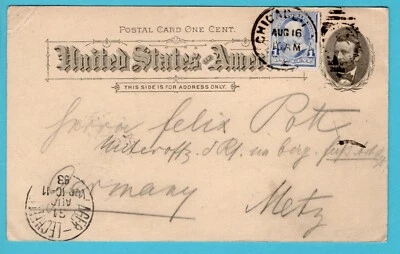 POSTAL CARD ONE CENT.
United States of America
THIS SIDE IS FOR ADDRESS ONLY.
CHICAGO
AUG 16
AM
Herrn Felix Pott
Germany
Metz
LAGER-LECHFELD
31
AUG
10-11
93